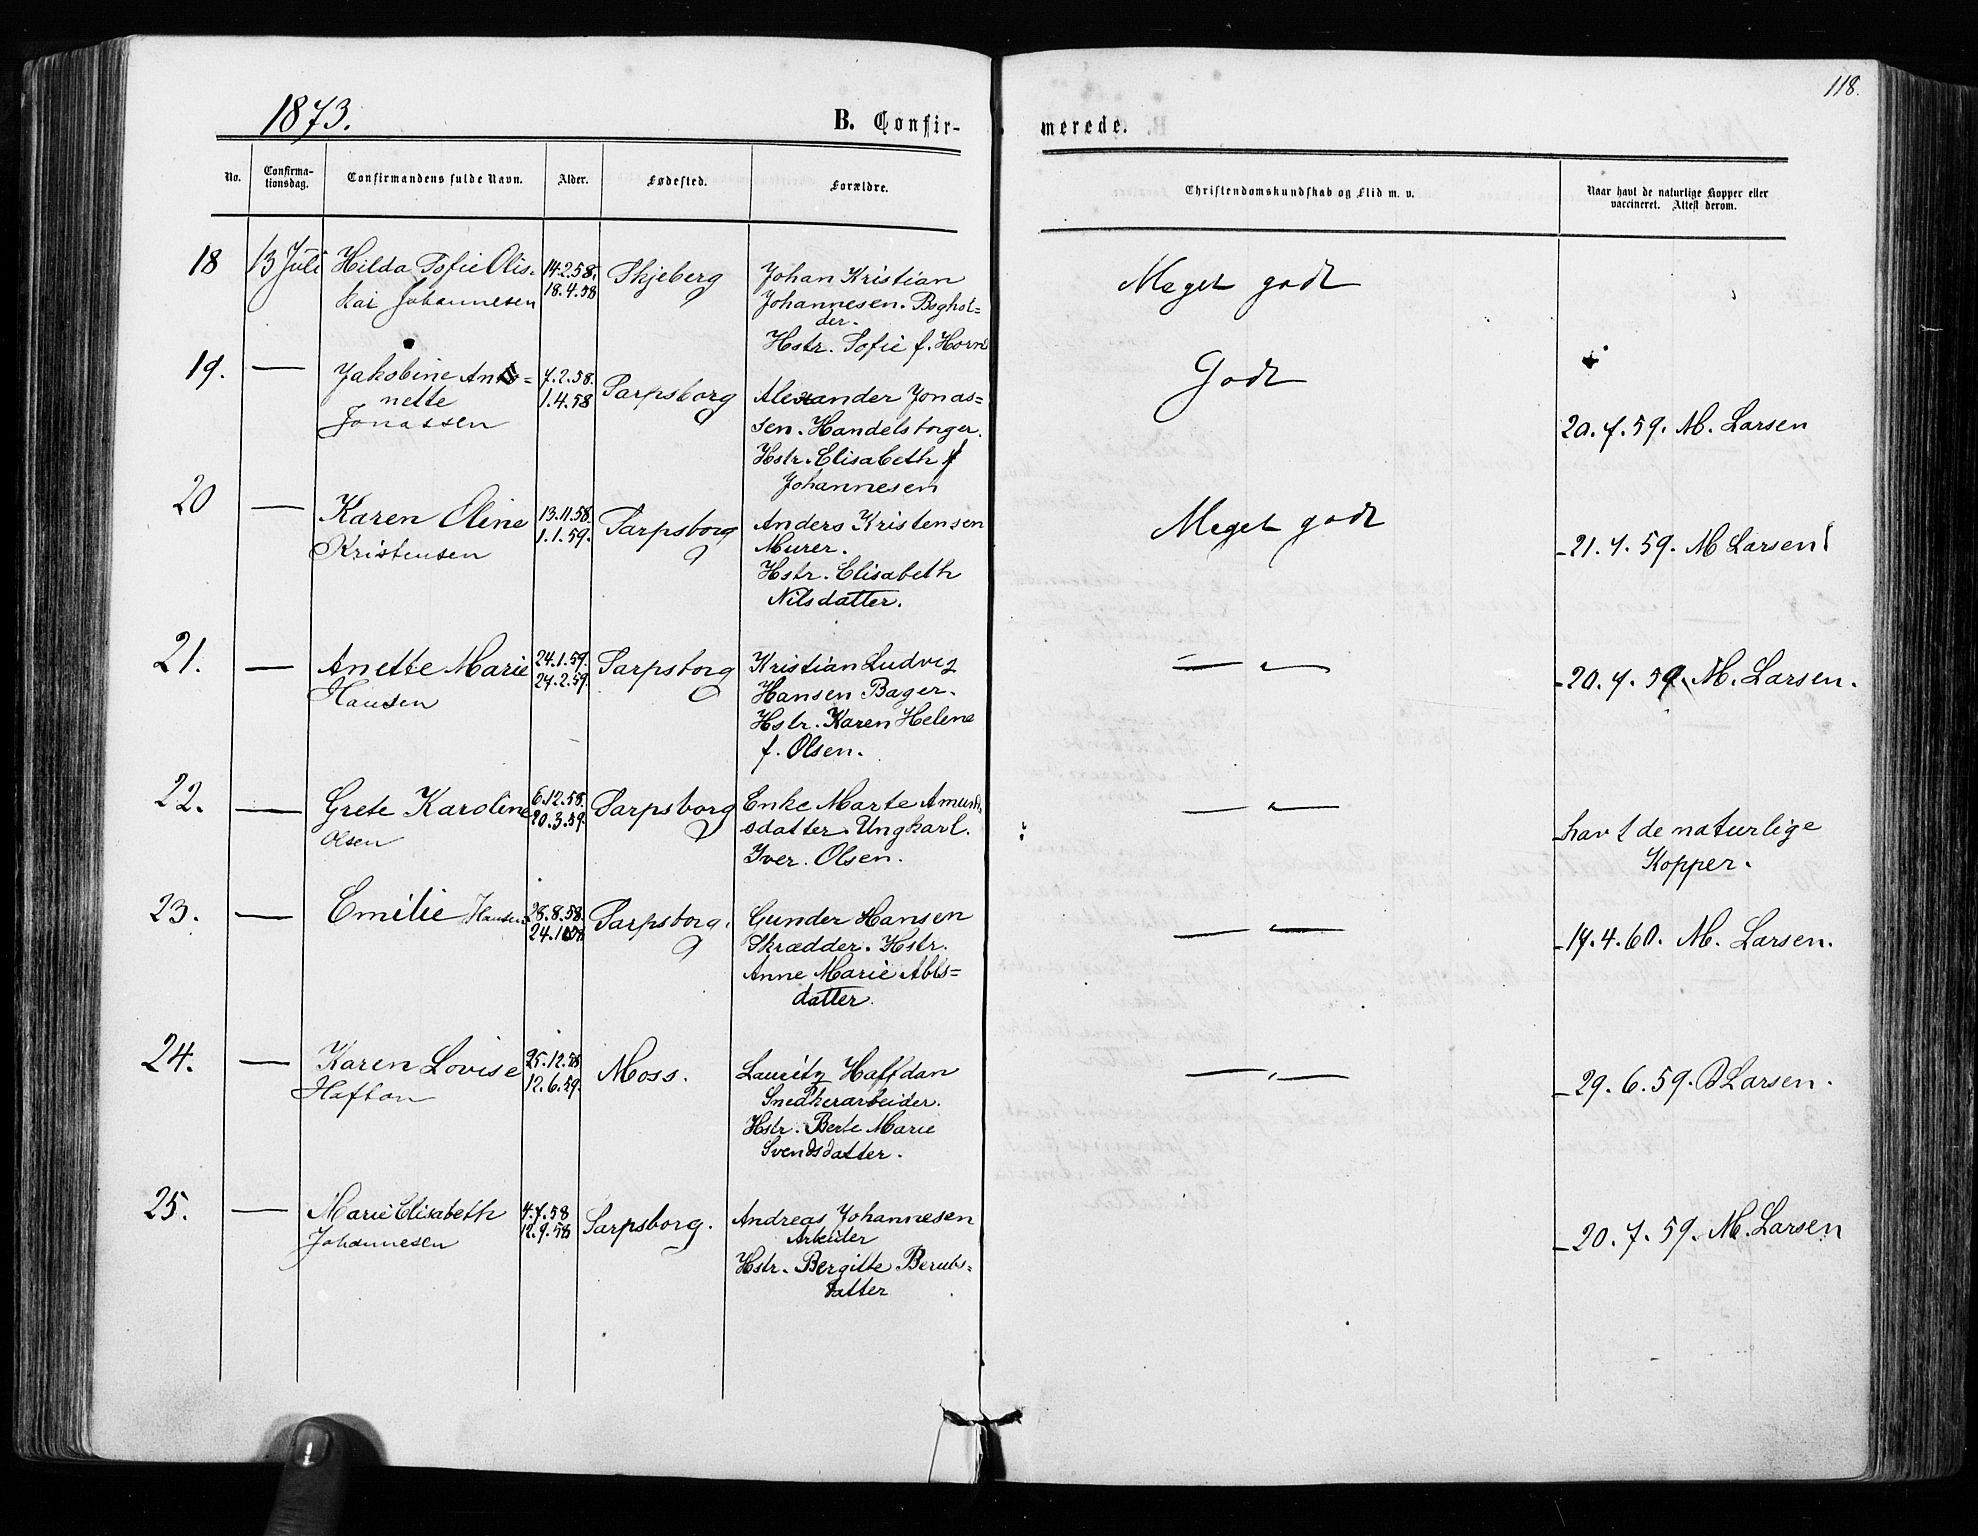 118.
1873.
B. Confir-
merede.
No.
Confirma-
tionsdag.
Confirmandens fulde Navn.
Alder.
Fødested.
Forældre.
Christendomskundskab og Flid m. v.
Naar havt de naturlige Kopper eller
vaccineret. Attest derom.
18 13 Juli Hilda Sofie Olis=
kai Johannesen
14.2.58.
18.4.58
Skjeberg
Johan Kristian
Johannesen. Boghol=
der.
Hstr. Sofie f. Horn
Meget godt
19. — Jakobine An=
nette
Jonassen
7.2.58.
1.4.58
Sarpsborg
Alexander Jonas=
sen. Handelsborger.
Hstr. Elisabeth f
Johannesen
Godt
20.7.59. M. Larsen
20 — Karen Oline
Kristensen
13.11.58.
1.1.59.
Sarpsborg
Anders Kristensen
Murer.
Hstr. Elisabeth
Nilsdatter.
Meget godt
21.7.59. M Larsen
21. — Anette Marie
Hansen
24.1.59.
24.2.59.
Sarpsborg
Kristian Ludvig
Hansen Bager.
Hstr. Karen Helene
f. Olsen.
— " —
20.7.59. M. Larsen.
22. — Grete Karoline
Olsen
6.12.58.
20.3.59.
Sarpsborg
Enke Marte Amund
sdatter. Ungkarl.
Iver Olsen.
— " —
havt de naturlige
Kopper.
23. — Emilie Hansen
28.8.58.
24.10.58
Sarpsborg.
Gunder Hansen
Skrædder. Hstr.
Anne Marie Abls=
datter.
— " —
17.4.60. M. Larsen.
24. — Karen Lovise
Hafton
25.12.58
12.6.59.
Moss.
Lauritz Haffdan
Snedkerarbeider.
Hstr. Berte Marie
Svendsdatter.
— " —
29.6.59. Larsen.
25. — Marie Elisabeth
Johannesen
4.7.58
12.9.58
Sarpsborg.
Andreas Johannesen
Arbeider
Hstr. Bergitte
datter
20.7.59. M. Larsen